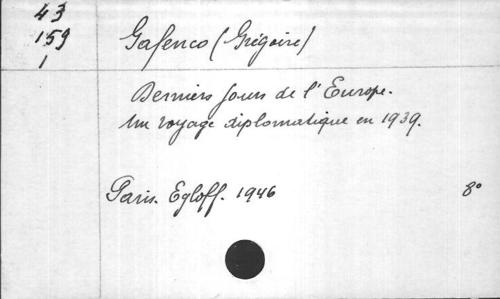 43
159
1
Gafenco (Grégoire)
Derniers Jours de l'Europe.
Un voyage diplomatique en 1939.
Paris. Egloff. 1946
8°